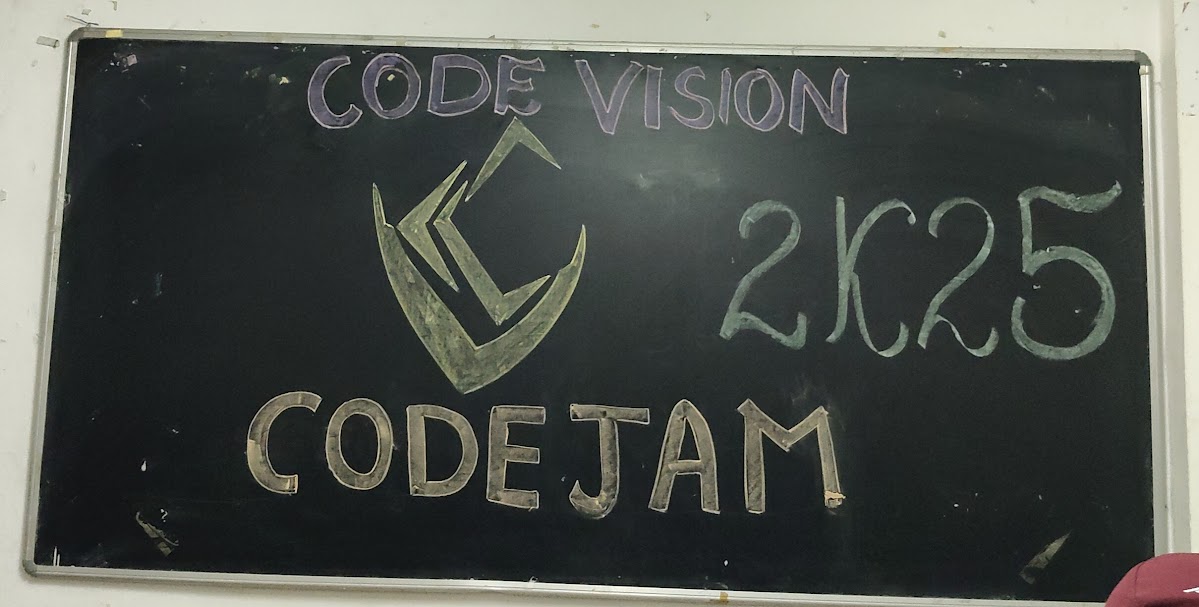 CODE VISION
2K25
CODEJAM